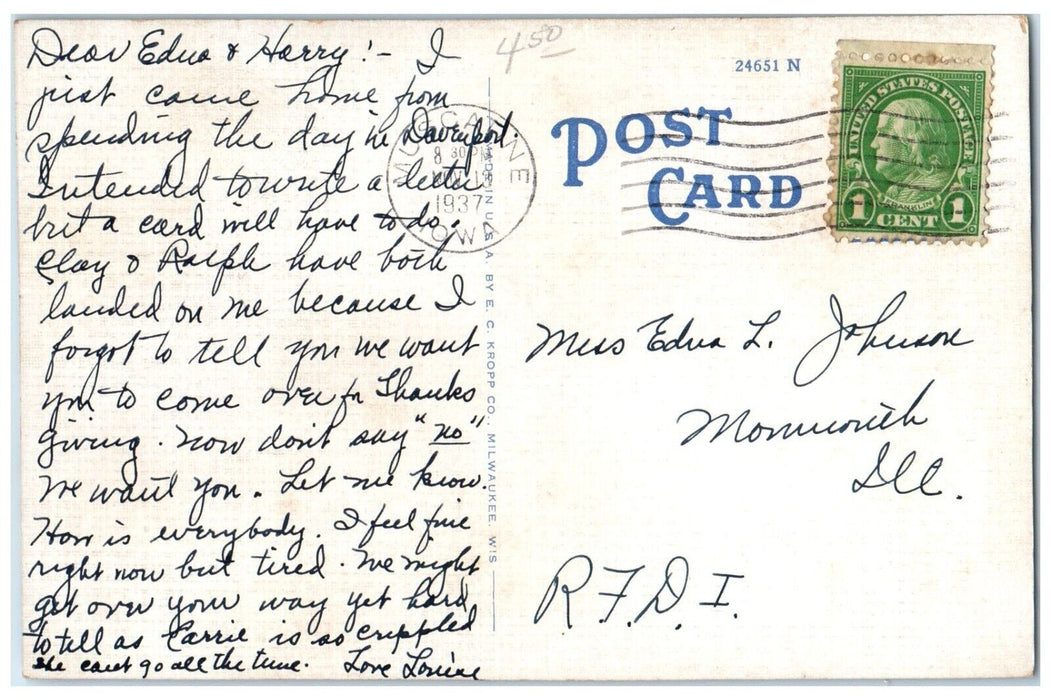 Dear Edna & Harry!- I
just came home from
spending the day in Davenport.
I intended to write a letter
but a card will have to do.
Clay & Ralph have both
landed on me because I
forgot to tell you we want
you to come over for Thanks
giving. Now don't say "no"
We want you. Let me know.
How is everybody. I feel fine
right now but tired. We might
get over your way yet hard
to tell as Carrie is so crippled
she cant go all the time. Love Louise
4 50
24651 N
POST
CARD
MUSCATINE
8 30 PM
NOV
1937
IOWA
UNITED STATES POSTAGE
FRANKLIN
1 CENT 1
U.S.A. BY E. C. KROPP CO., MILWAUKEE, WIS
Miss Edna L. Johnson
Monmouth
Ill.
R.F.D. I.